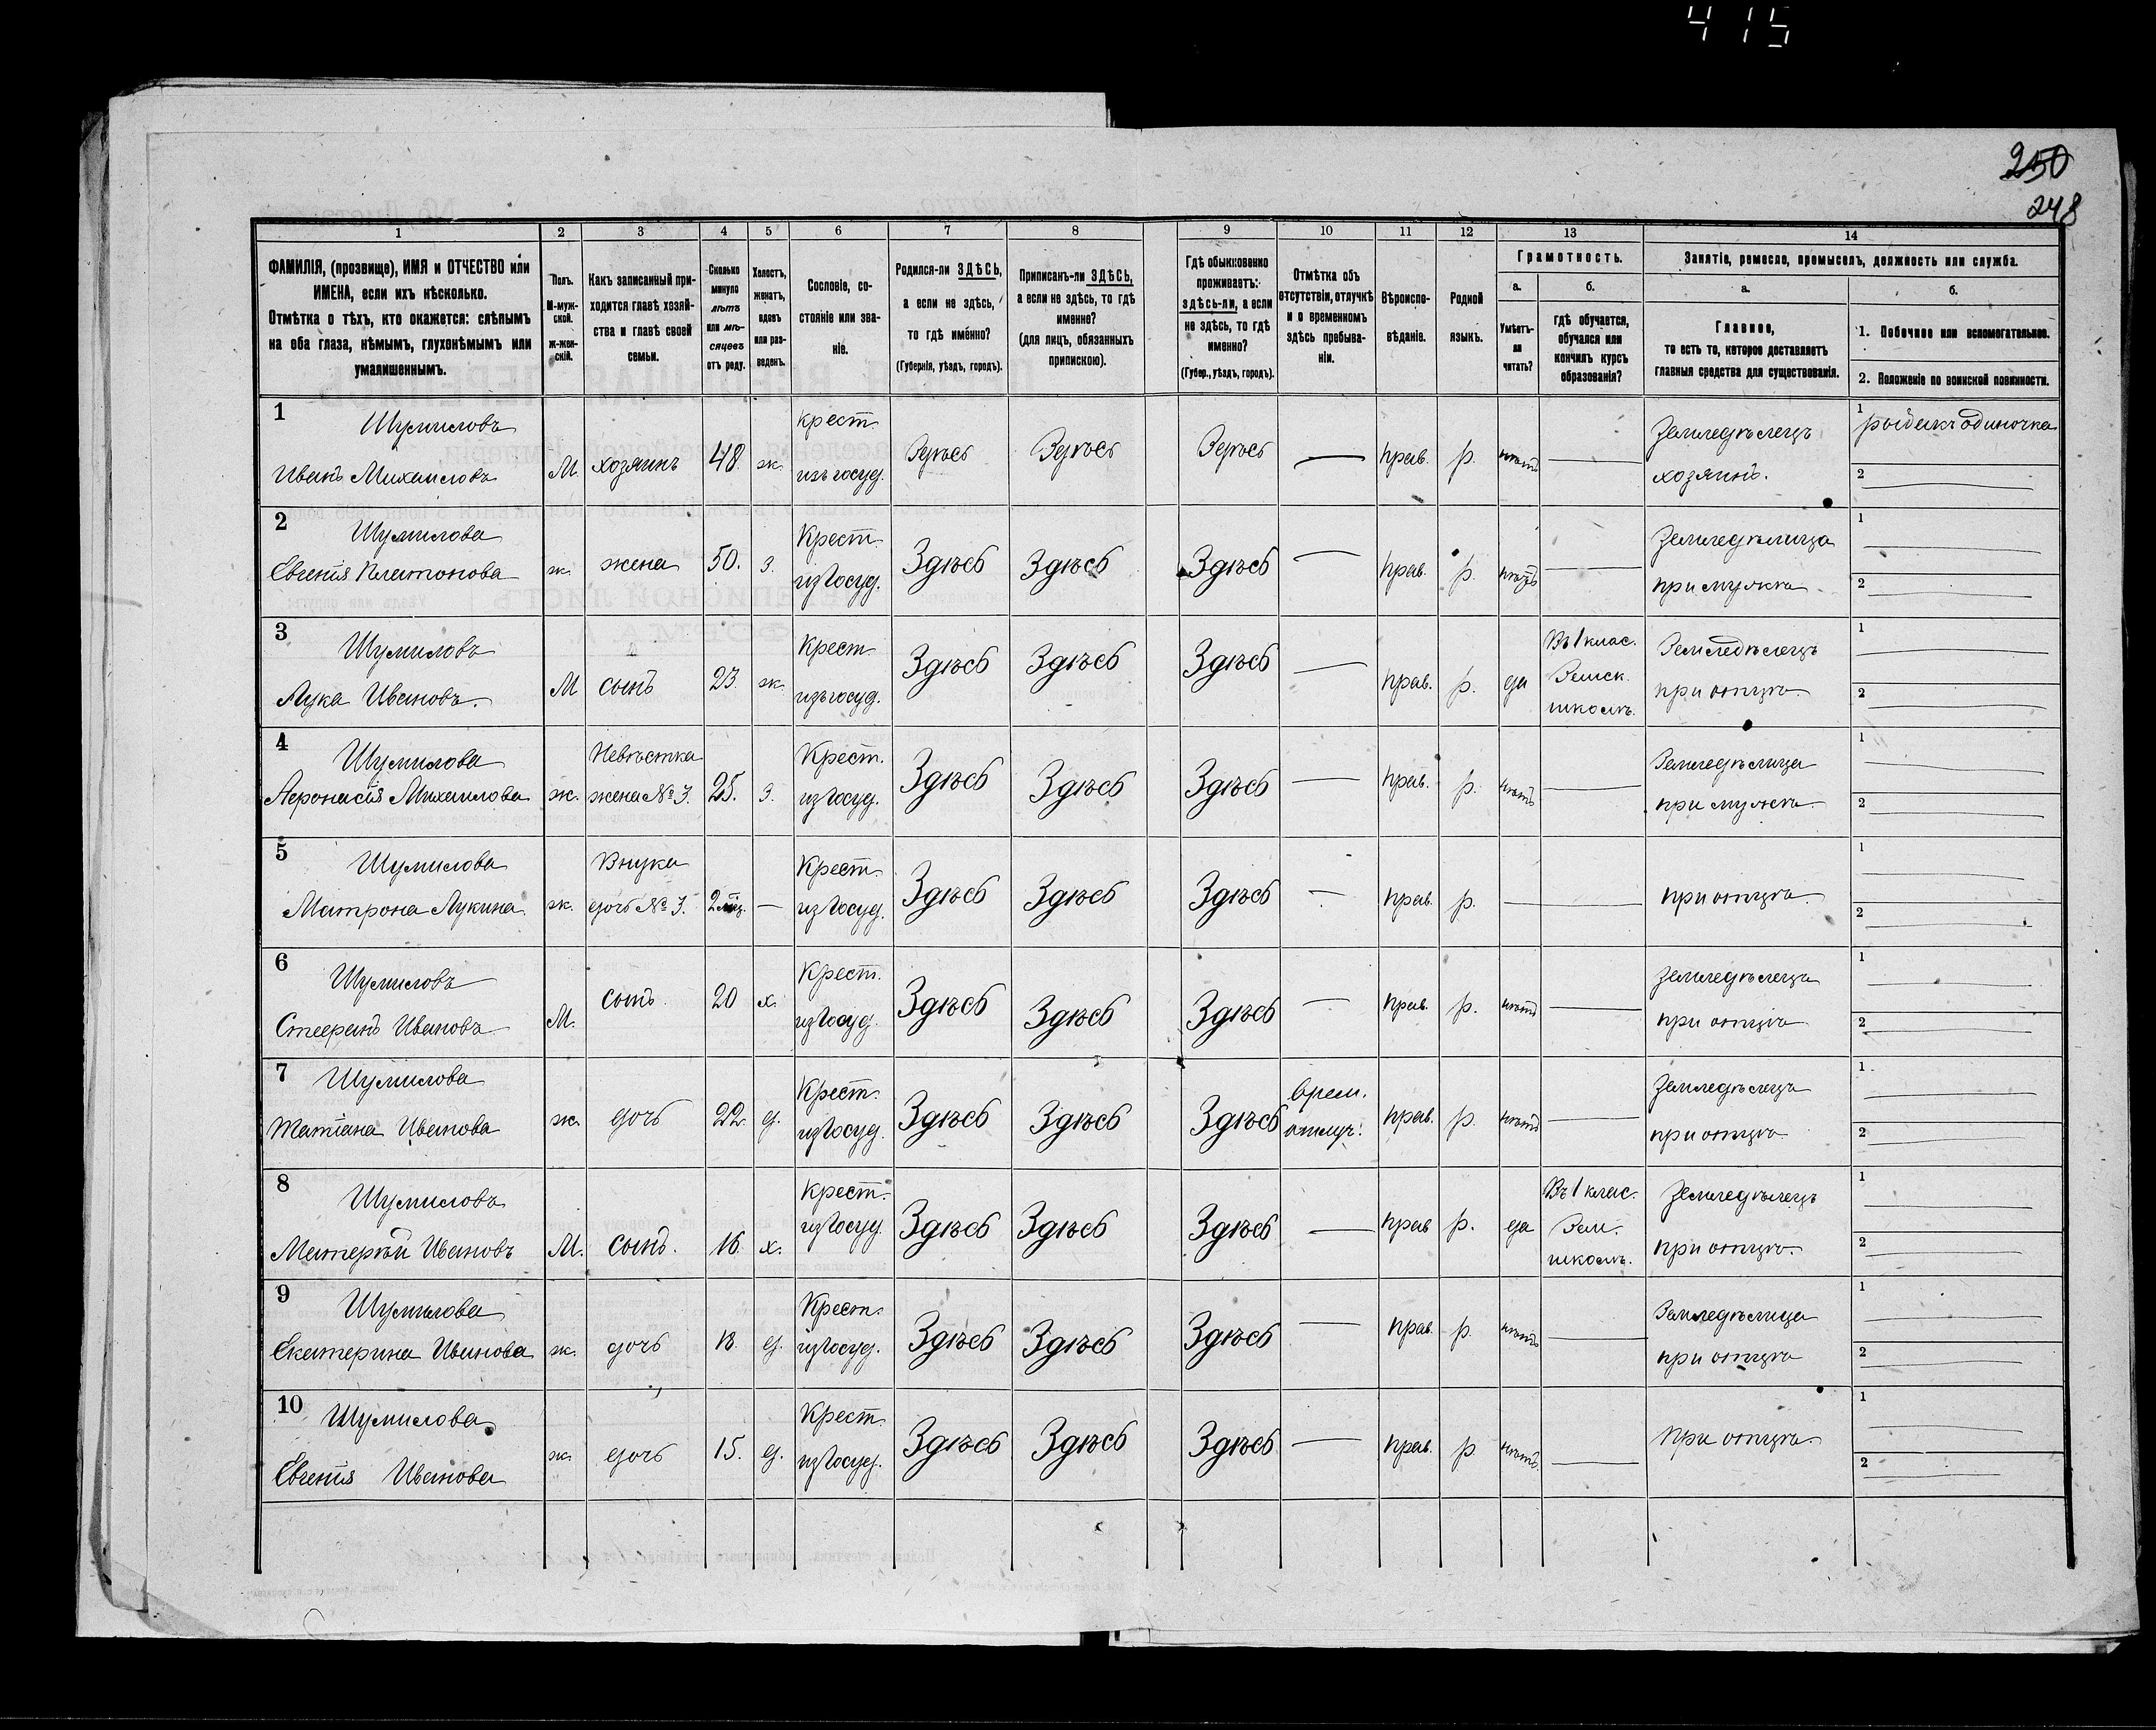 415
250
248
1 2 3 4 5 6 7 8 9 10 11 12 13 14
ФАМИЛІЯ, (прозвище), ИМЯ и ОТЧЕСТВО или
ИМЕНА, если ихъ нѣсколько.
Отмѣтка о тѣхъ, кто окажется: слѣпымъ
на оба глаза, нѣмымъ, глухонѣмымъ или
умалишеннымъ.
Полъ.
М-муж-
ской.
ж-жен-
скій.
Какъ записанный при-
ходится главѣ хозяй-
ства и главѣ своей
семьи.
Сколько
минуло
лѣтъ
или мѣ-
сяцевъ
отъ роду.
Холостъ,
женатъ,
вдовъ
или раз-
веденъ.
Сословіе, со-
стояніе или зва-
ніе.
Родился-ли ЗДѢСЬ,
а если не здѣсь,
то гдѣ именно?
(Губернія, уѣздъ, городъ).
Приписанъ-ли ЗДѢСЬ,
а если не здѣсь, то гдѣ
именно?
(для лицъ, обязанныхъ
припискою).
Гдѣ обыкновенно
проживаетъ:
здѣсь-ли, а если
не здѣсь, то гдѣ
именно?
(Губер., уѣздъ, городъ).
Отмѣтка объ
отсутствіи, отлучкѣ
и о временномъ
здѣсь пребыва-
ніи.
Вѣроиспо-
вѣданіе.
Родной
языкъ.
Грамотность.
а.
Умѣетъ-
ли
читать?
б.
гдѣ обучается,
обучался или
кончилъ курсъ
образованія?
Занятіе, ремесло, промыселъ, должность или служба.
а.
Главное,
то есть то, которое доставляетъ
главныя средства для существованія.
б.
1. Побочное или вспомогательное.
2. Положеніе по воинской повинности.
1 Шумиловъ крест. Земледѣлецъ 1
Иванъ Михаиловъ М. хозяинъ 48 ж. изъ госуд. Здѣсь Здѣсь Здѣсь — прав. р. нѣтъ — хозяинъ. 2
2 Шумилова Крест. Земледѣлица 1
Евгенія Платонова ж. жена 50. з. из госуд. Здѣсь Здѣсь Здѣсь — прав. р. нѣтъ — при мужѣ 2
3 Шумиловъ Крест. Въ 1 клас. Земледѣлецъ 1
Лука Ивановъ. М сынъ 23. ж. изъ госуд. Здѣсь Здѣсь Здѣсь — прав. р. да Земск. при отцѣ 2
школѣ.
4 Шумилова Невѣстка Крест. Земледѣлица 1
Афонасія Михаилова ж. жена № 3. 25. з. из госуд. Здѣсь Здѣсь Здѣсь — прав. р. нѣтъ — при мужѣ 2
5 Шумилова Внука Крест. 1
Матрона Лукина ж. дочь № 3. — из госуд. Здѣсь Здѣсь Здѣсь — прав. р. — — при отцѣ. 2
6 Шумиловъ Крест. Земледѣлецъ 1
Стефанъ Ивановъ М. сынъ. 20 х. из госуд. Здѣсь Здѣсь Здѣсь — прав. р. нѣтъ — при отцѣ 2
7 Шумилова Крест. врем. Земледѣлецъ 1
Татіана Иванова ж. дочь 22. д. из госуд. Здѣсь Здѣсь Здѣсь отлуч. прав. р. нѣтъ — при отцѣ 2
8 Шумиловъ Крест. Въ 1 клас. Земледѣлецъ 1
Матерѣй Ивановъ М. сынъ. 16. х. из госуд. Здѣсь Здѣсь Здѣсь — прав р. да Зем. при отцѣ. 2
школѣ.
9 Шумилова Крест. Земледѣлица 1
Екатерина Иванова ж. дочь 18. д. из госуд. Здѣсь Здѣсь Здѣсь — прав. р. нѣтъ — при отцѣ 2
10 Шумилова Крест. 1
Евгенія Иванова ж. дочь 15. д. из госуд. Здѣсь Здѣсь Здѣсь — прав. р нѣтъ. — при отцѣ. 2